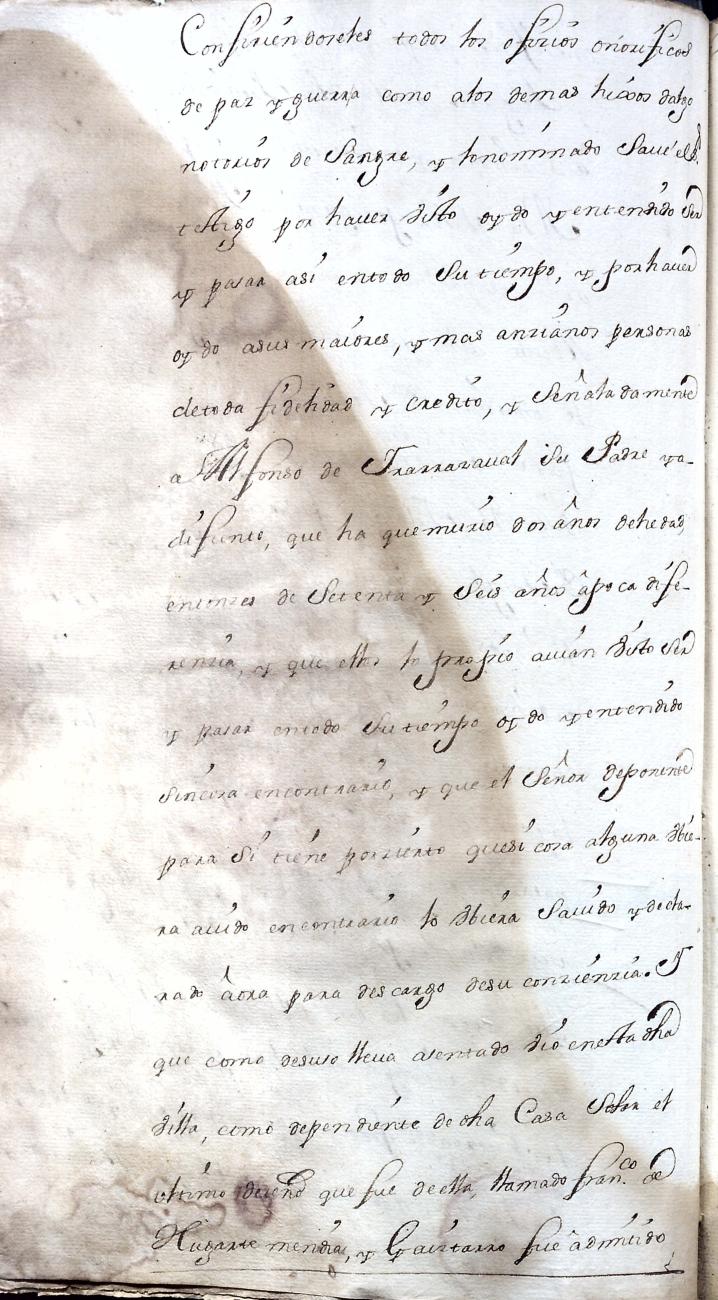 Confiriendoseles todos los ofizios onorificos
de paz y guerra como alos demas hixos dalgo
notorios de Sangre, y lo nominado Save el S.
testigo por haver visto oydo y entendido Ser
y pasar asi entodo Su tiempo, y por haver
oydo asus maiores, y mas anzianos personas
detoda fidelidad y credito, y Señaladamente
a Alfonso de Trarrazaval Su Padre ya
difunto, que ha que murio dos años dehedad,
entonzes de Setenta y Seis años apoca dife-
renzia, y que ellos lo propio avian visto Ser
y pasar entodo Su tiempo oydo y entendido
Sincosa encontrario, y que el Señor deponente
para Si tiene porzierto quesi cosa alguna Vbie-
ra avido encontrario lo Vbiera Savido y decla-
rado aora para descargo desu conzienzia. Y
que como desuso lleva asentado dio enesta dha
Villa, como dependiente de dha Casa Solar el
ultimo que fue de ella, llamado Fran.co de
Hugarte mendia, y Gavitarro fue admitido